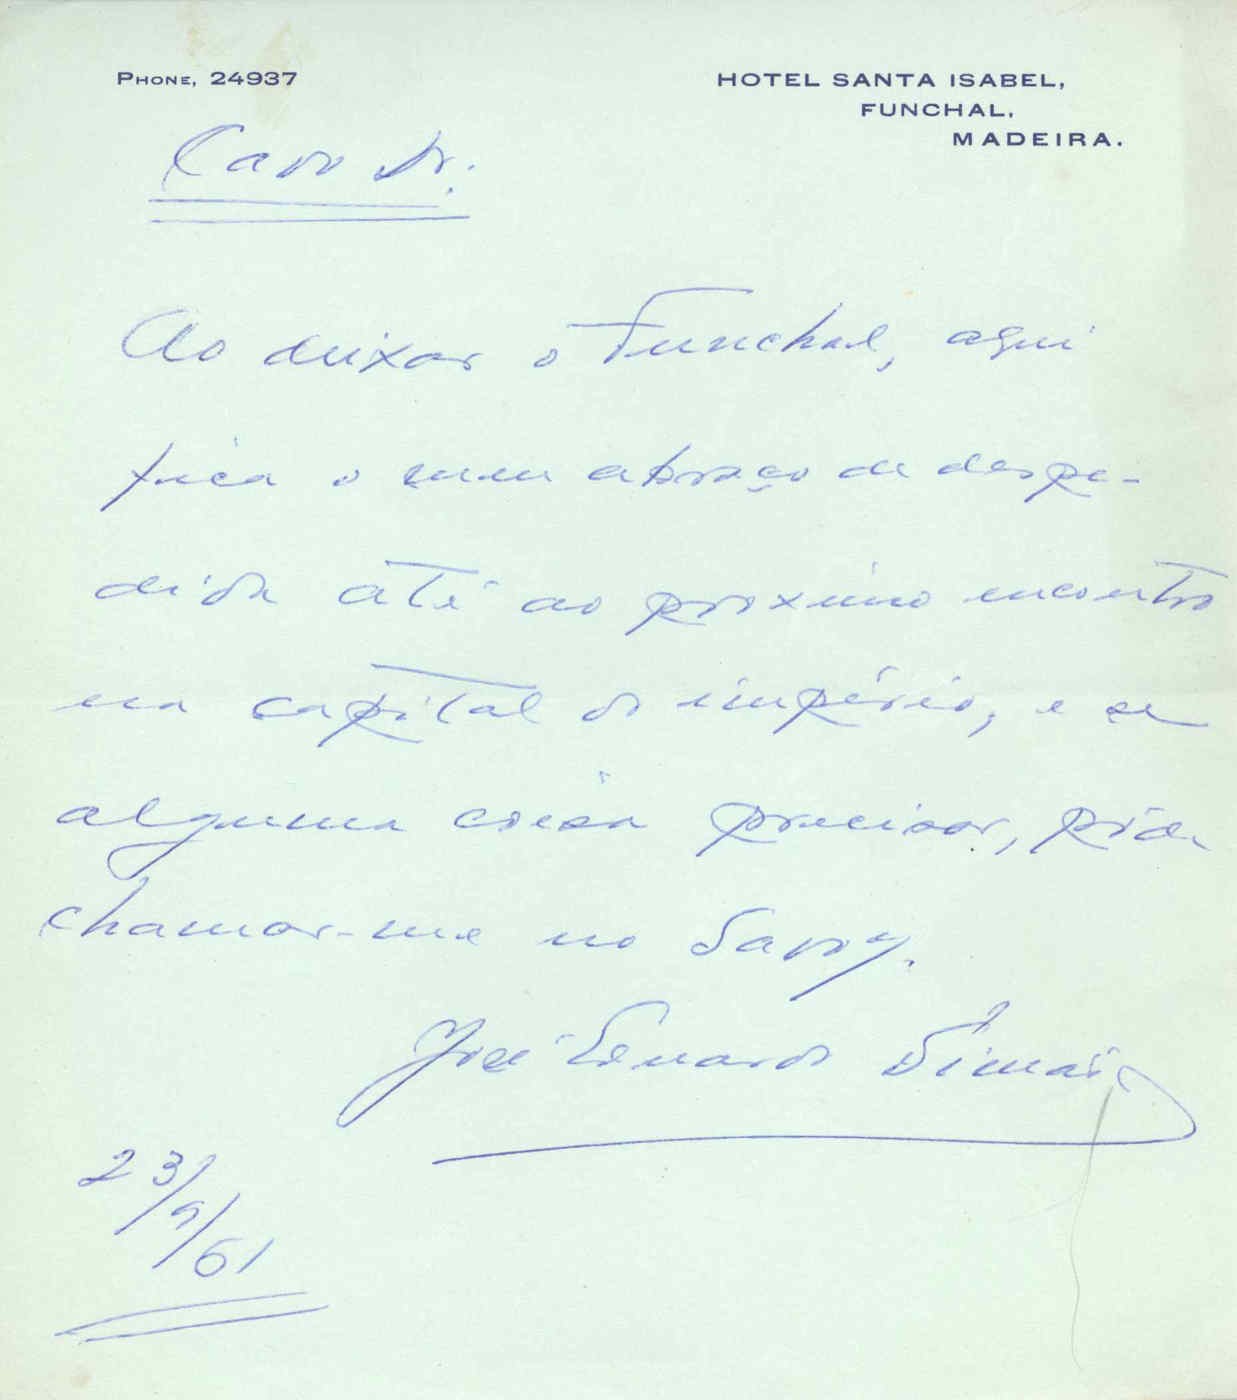 PHONE, 24937
HOTEL SANTA ISABEL,
FUNCHAL,
MADEIRA.
Caro Dr.
Ao deixar o Funchal, aqui
fica o meu abraço de despe-
dida até ao proximo encontro
na capital do império, e se
alguma coisa precisar, póde
chamar-me no Savoy.
José Eduardo Simão
23/9/61